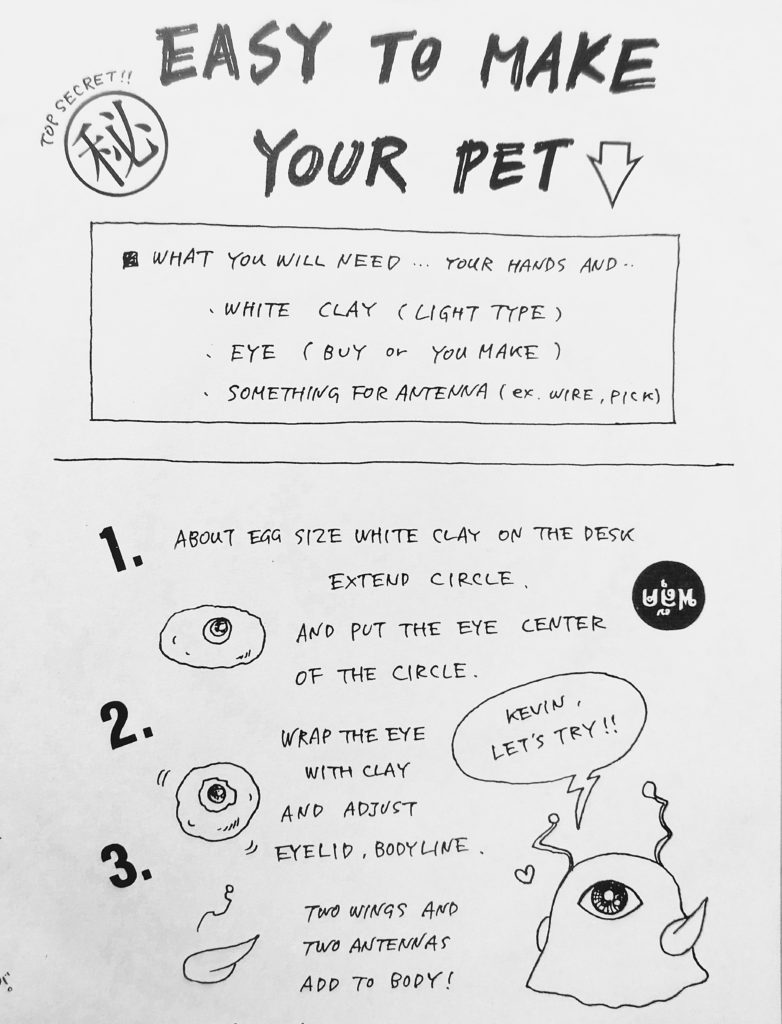 EASY TO MAKE
TOP SECRET!!
秘
YOUR PET
WHAT YOU WILL NEED ... YOUR HANDS AND..
・WHITE CLAY (LIGHT TYPE)
・EYE (BUY or YOU MAKE)
・SOMETHING FOR ANTENNA (ex. WIRE, PICK)
1. ABOUT EGG SIZE WHITE CLAY ON THE DESK
EXTEND CIRCLE.
AND PUT THE EYE CENTER
OF THE CIRCLE.
2. WRAP THE EYE
WITH CLAY
AND ADJUST
EYELID, BODYLINE.
KEVIN,
LET'S TRY!!
3. TWO WINGS AND
TWO ANTENNAS
ADD TO BODY!